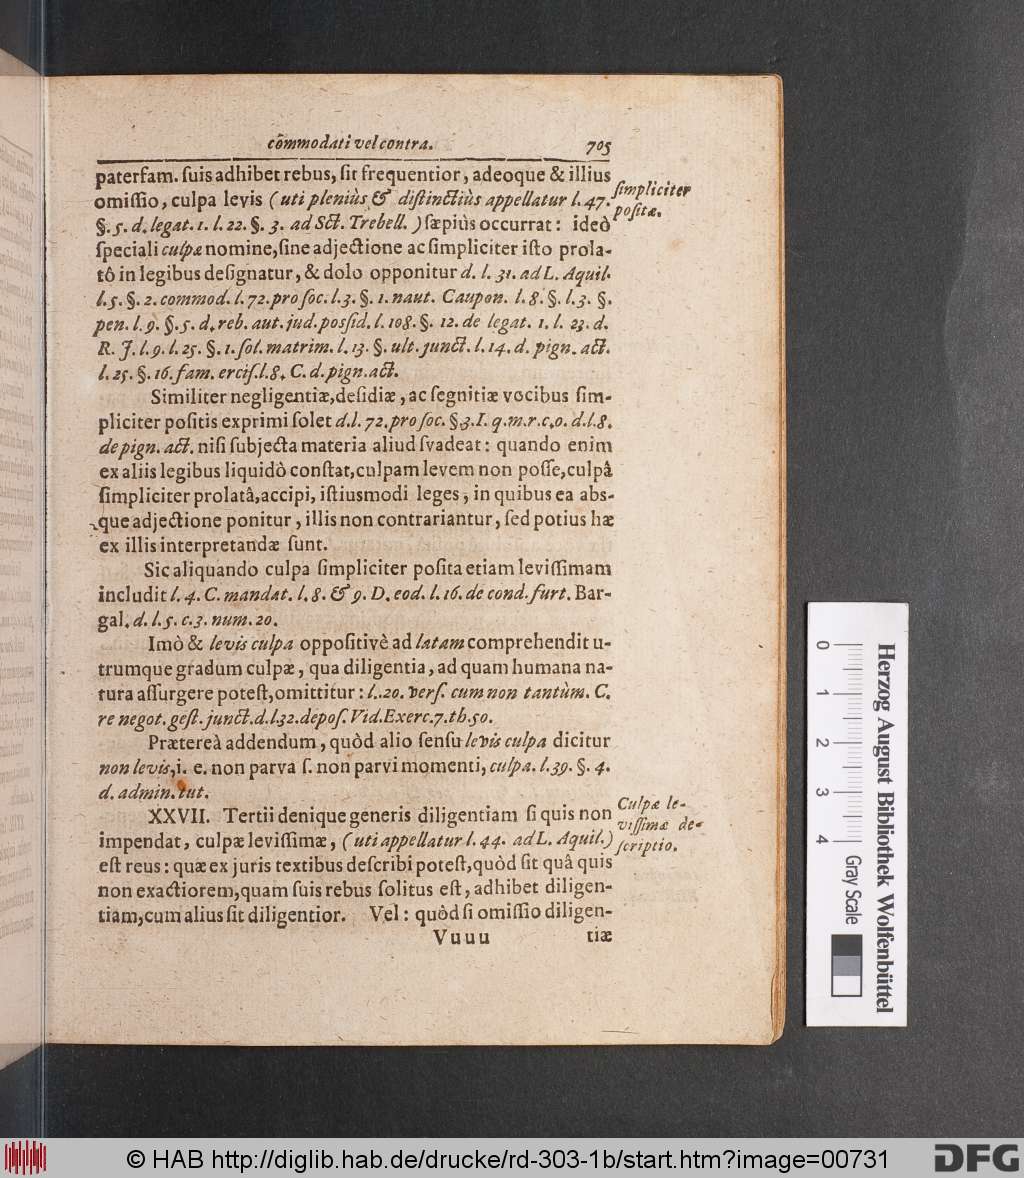 cõmmodati vel contra. 705
paterfam. suis adhibet rebus, sit frequentior, adeoque & illius
omissio, culpa levis (uti pleniùs & distinctiùs appellatur l. 47.
§. 5. d. legat. 1. l. 22. §. 3. ad Sct. Trebell.) sæpiùs occurrat: ideò
speciali culpæ nomine, sine adjectione ac simpliciter isto prola-
tô in legibus designatur, & dolo opponitur d. l. 31. ad L. Aquil.
l. 5. §. 2. commod. l. 72. pro soc. l. 3. §. 1. naut. Caupon. l. 8. §. l. 3. §.
pen. l. 9. §. 5. d. reb. aut. jud. possid. l. 108. §. 12. de legat. 1. l. 23. d.
R. J. l. 9. l. 25. §. 1. sol. matrim. l. 13. §. ult. junct. l. 14. d. pign. act.
l. 25. §. 16. fam. ercis. l. 8. C. d. pign. act.
simpliciter
positæ.
Similiter negligentiæ, desidiæ, ac segnitiæ vocibus sim-
pliciter positis exprimi solet d. l. 72. pro soc. §. 3. I. q. m. r. c. o. d. l. 8.
de pign. act. nisi subjecta materia aliud svadeat: quando enim
ex aliis legibus liquidò constat, culpam levem non posse, culpâ
simpliciter prolatâ, accipi, istiusmodi leges, in quibus ea abs-
que adjectione ponitur, illis non contrariantur, sed potius hæ
ex illis interpretandæ sunt.
Sic aliquando culpa simpliciter posita etiam levissimam
includit l. 4. C. mandat. l. 8. & 9. D. eod. l. 16. de cond. furt. Bar-
gal. d. l. 5. c. 3. num. 20.
Imò & levis culpa oppositivè ad latam comprehendit u-
trumque gradum culpæ, qua diligentia, ad quam humana na-
tura assurgere potest, omittitur: l. 20. vers. cum non tantùm. C.
re negot. gest. junct. d. l. 32. depos. Vid. Exerc. 7. th. 50.
Prætereà addendum, quòd alio sensu levis culpa dicitur
non levis, i. e. non parva s. non parvi momenti, culpa. l. 39. §. 4.
d. admin. tut.
XXVII. Tertii denique generis diligentiam si quis non
impendat, culpæ levissimæ, (uti appellatur l. 44. ad L. Aquil.)
est reus: quæ ex juris textibus describi potest, quòd sit quâ quis
non exactiorem, quam suis rebus solitus est, adhibet diligen-
tiam, cum alius sit diligentior. Vel: quòd si omissio diligen-
Culpæ le-
vissimæ de-
scriptio.
Vuuu tiæ
0 1 2 3 4
Gray Scale
Herzog August Bibliothek Wolfenbüttel
© HAB http://diglib.hab.de/drucke/rd-303-1b/start.htm?image=00731
DFG